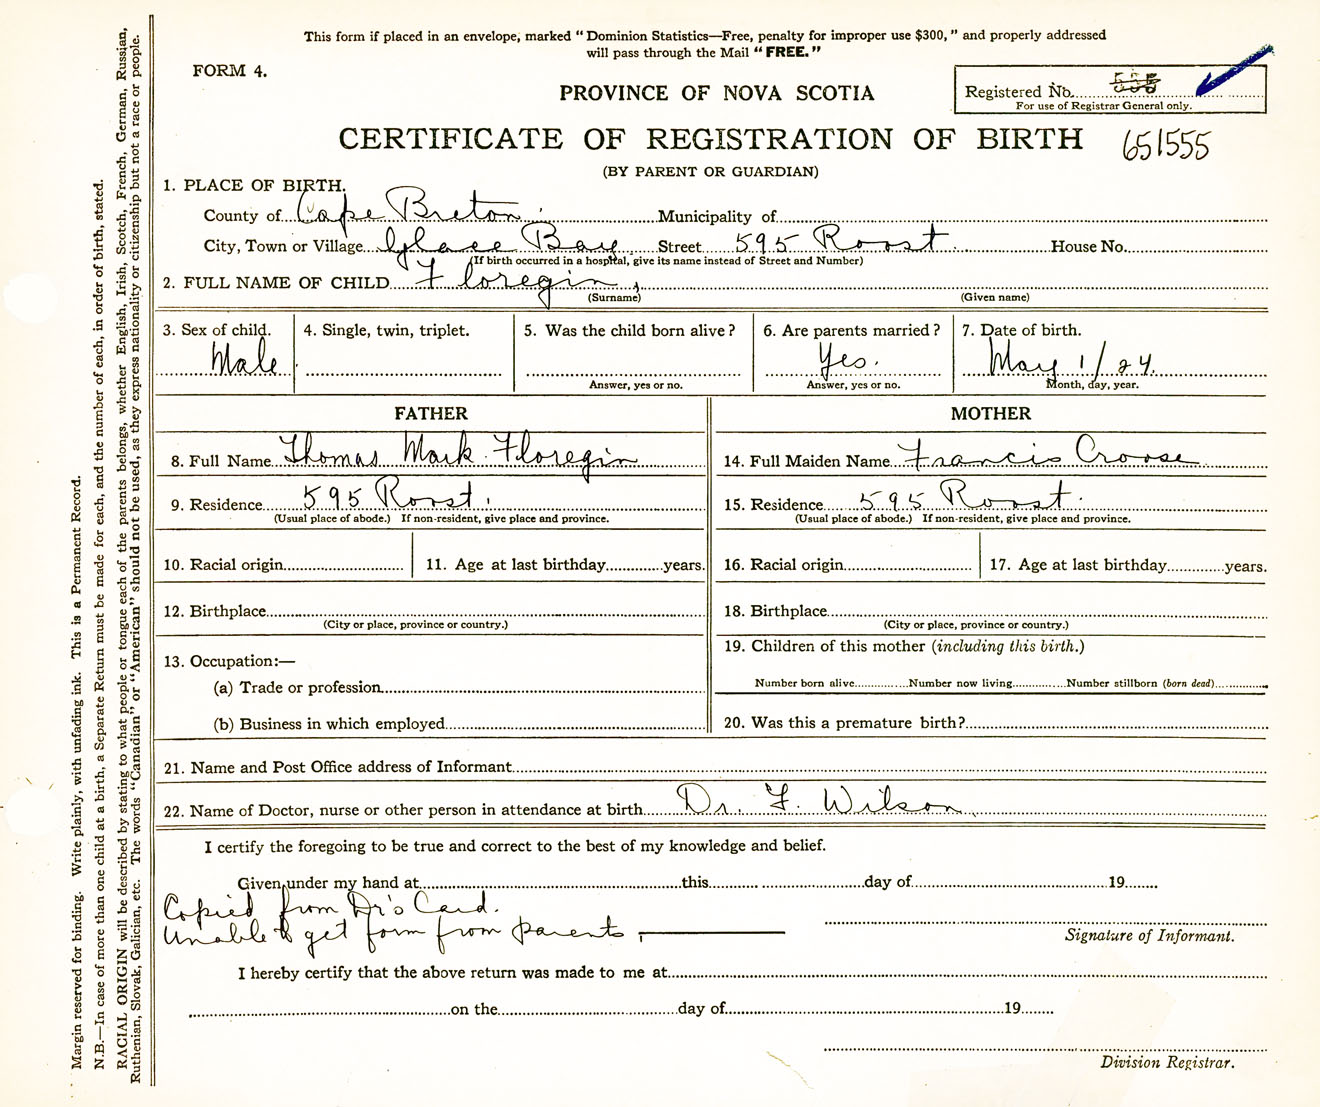 This form if placed in an envelope, marked "Dominion Statistics—Free, penalty for improper use $300," and properly addressed
will pass through the Mail "FREE."
FORM 4.
PROVINCE OF NOVA SCOTIA
Registered No.
For use of Registrar General only.
CERTIFICATE OF REGISTRATION OF BIRTH 651555
(BY PARENT OR GUARDIAN)
1. PLACE OF BIRTH.
County of Cape Breton Municipality of
City, Town or Village Glace Bay Street 595 Roost House No.
(If birth occurred in a hospital, give its name instead of Street and Number)
2. FULL NAME OF CHILD Floregin,
(Surname) (Given name)
3. Sex of child. 4. Single, twin, triplet. 5. Was the child born alive? 6. Are parents married? 7. Date of birth.
Male Yes. May 1/24.
Answer, yes or no. Answer, yes or no. Month, day, year.
FATHER MOTHER
8. Full Name Thomas Mark Floregin 14. Full Maiden Name Francis Croose
9. Residence 595 Roost. 15. Residence 595 Roost.
(Usual place of abode.) If non-resident, give place and province. (Usual place of abode.) If non-resident, give place and province.
10. Racial origin 11. Age at last birthday years. 16. Racial origin 17. Age at last birthday years.
12. Birthplace 18. Birthplace
(City or place, province or country.) (City or place, province or country.)
19. Children of this mother (including this birth.)
13. Occupation:—
(a) Trade or profession Number born alive Number now living Number stillborn (born dead)
(b) Business in which employed 20. Was this a premature birth?
21. Name and Post Office address of Informant
22. Name of Doctor, nurse or other person in attendance at birth Dr. F. Wilson
I certify the foregoing to be true and correct to the best of my knowledge and belief.
Given under my hand at this day of 19
Copied from Dr's Card.
Unable to get form from parents,
Signature of Informant.
I hereby certify that the above return was made to me at
on the day of 19
Division Registrar.
Margin reserved for binding. Write plainly, with unfading ink. This is a Permanent Record.
N.B.—In case of more than one child at a birth, a Separate Return must be made for each, and the number of each, in order of birth, stated.
RACIAL ORIGIN will be described by stating to what people or tongue each of the parents belongs, whether English, Irish, Scotch, French, German, Russian,
Ruthenian, Slovak, Galician, etc. The words "Canadian" or "American" should not be used, as they express nationality or citizenship but not a race or people.